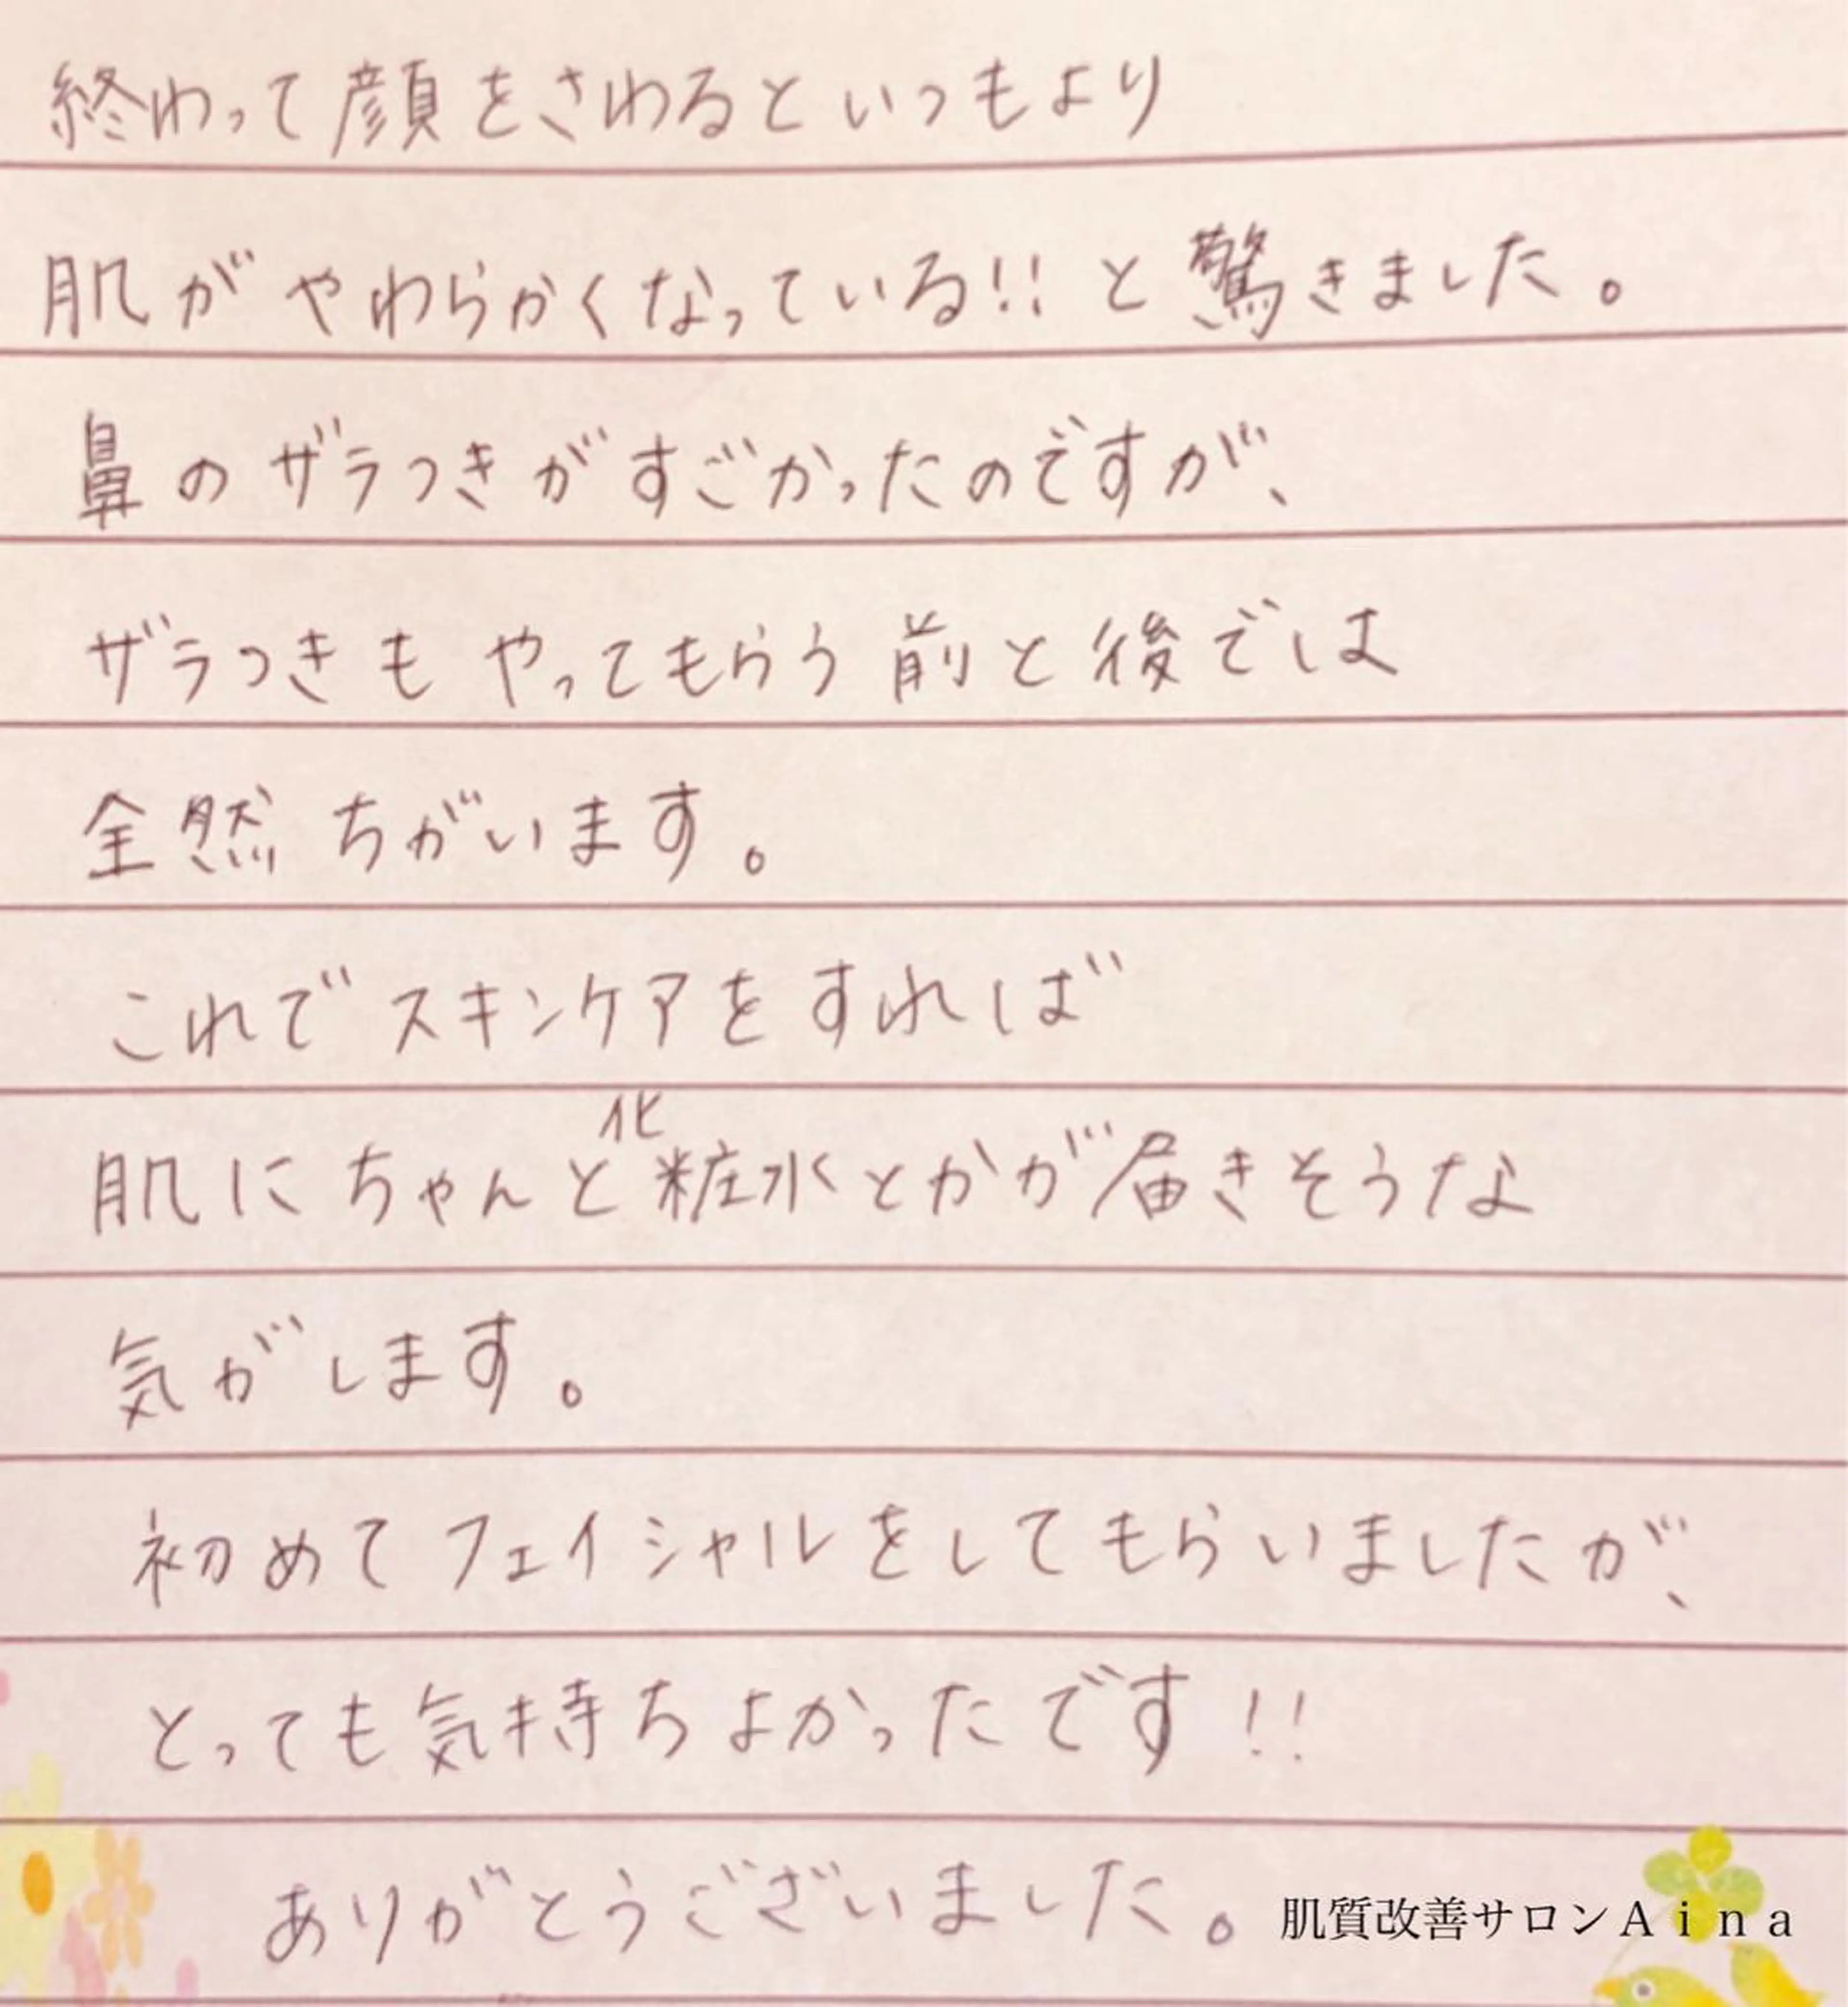 終わって顔をさわるといつもより
肌がやわらかくなっている!!と驚きました。
鼻のザラつきがすごかったのですが、
ザラつきもやってもらう前と後では
全然ちがいます。
これでスキンケアをすれば
肌にちゃんと化粧水とかが届きそうな
気がします。
初めてフェイシャルをしてもらいましたが、
とっても気持ちよかったです!!
ありがとうございました。
肌質改善サロンAina